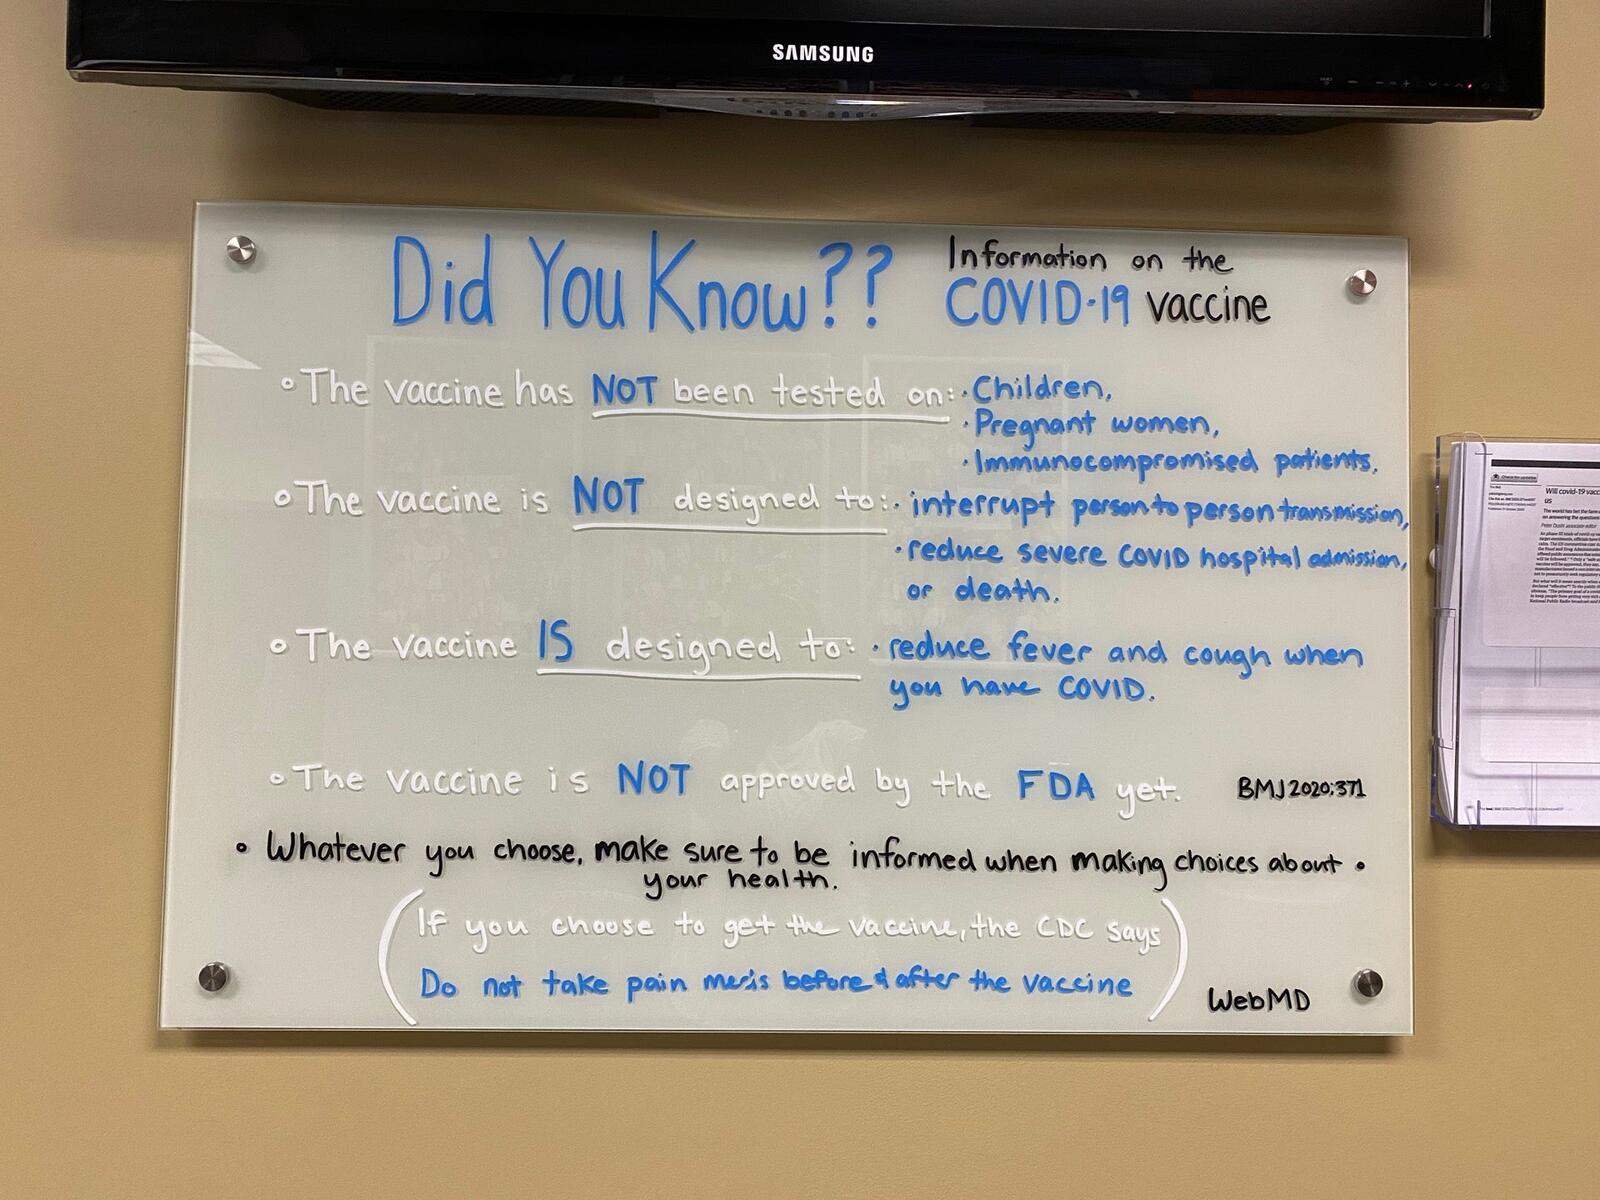 SAMSUNG
Did You Know??
Information on the
COVID-19 vaccine
◦ The vaccine has NOT been tested on: · Children,
· Pregnant women,
· Immunocompromised patients.
◦ The vaccine is NOT designed to: · interrupt person to person transmission,
· reduce severe COVID hospital admission,
or death.
◦ The vaccine IS designed to: · reduce fever and cough when
you have COVID.
◦ The vaccine is NOT approved by the FDA yet.
BMJ 2020;371
• Whatever you choose, make sure to be informed when making choices about •
your health.
(If you choose to get the vaccine, the CDC says
Do not take pain meds before & after the vaccine)
WebMD
Check for updates
Will covid-19 vacc
us
The world has bet the farm
on answering the question
Peter Doshi associate editor